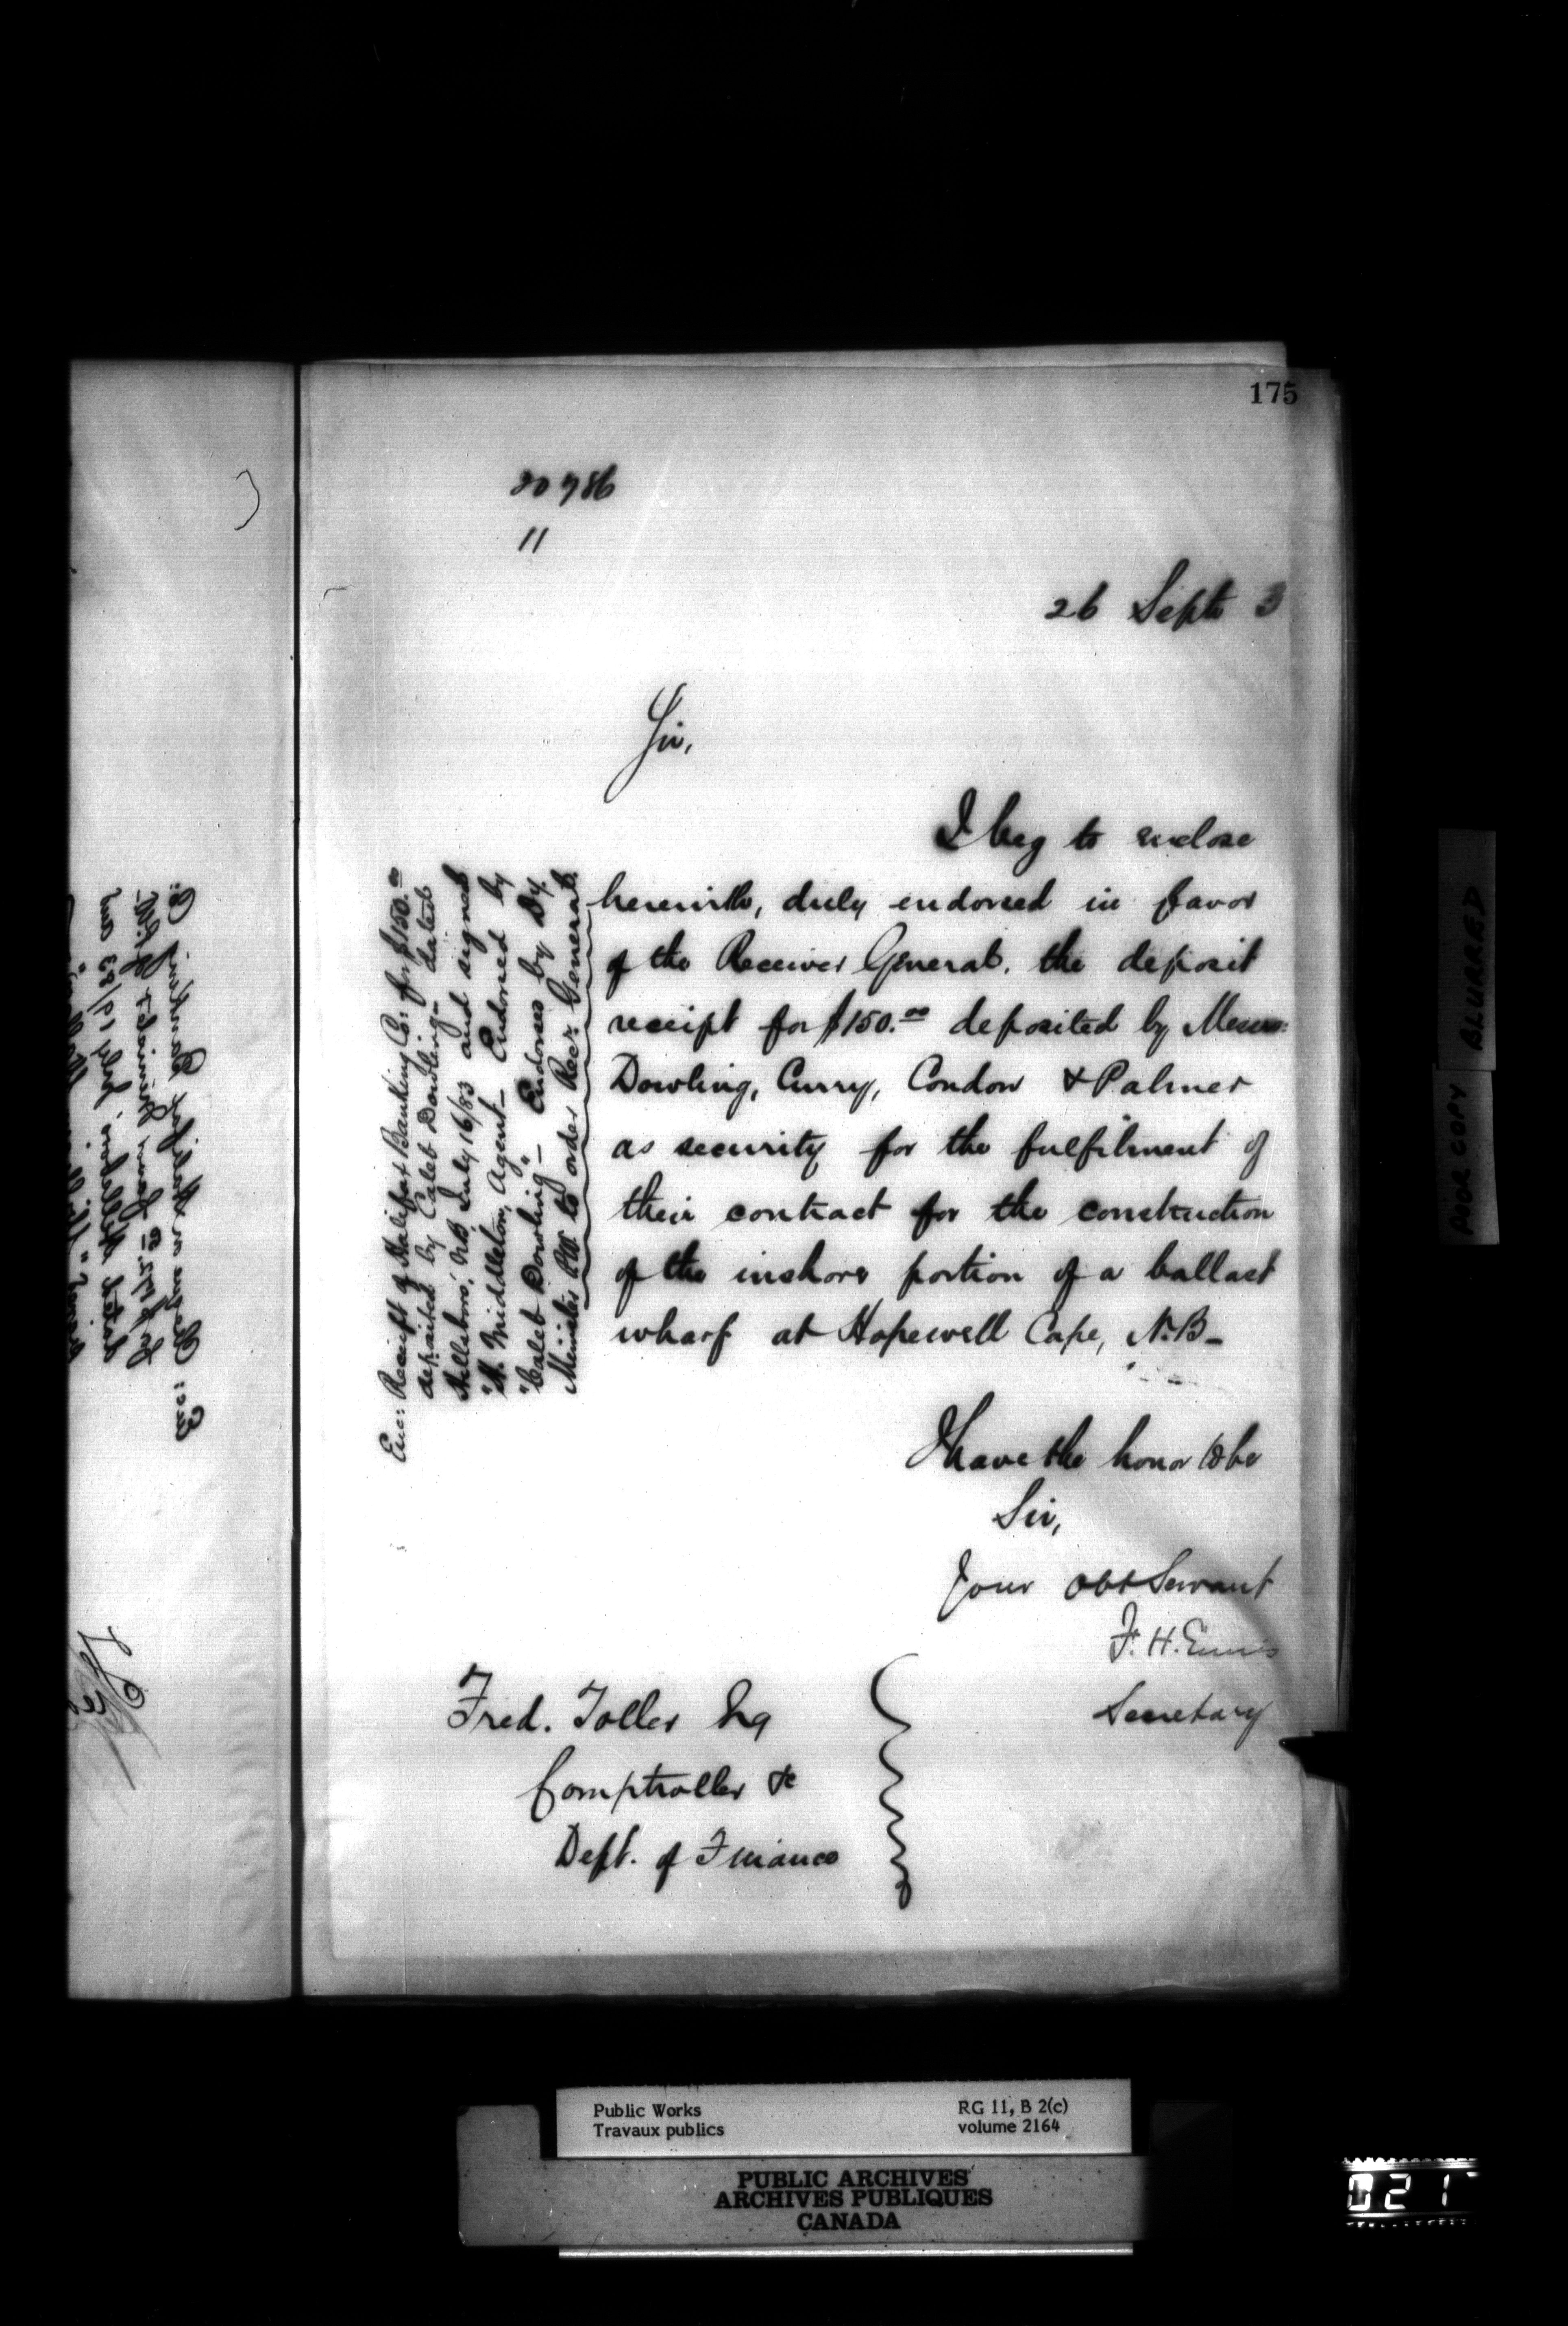 175
20786
11
26 Septr 3
Sir,
I beg to enclose
herewith, duly endorsed in favor
of the Receiver General, the deposit
receipt for $150.00 deposited by Messrs:
Dowling, Curry, Condon & Palmer
as security for the fulfilment of
their contract for the construction
of the inshore portion of a ballast
wharf at Hopewell Cape, N.B-
I have the honor to be
Sir,
Your Obt Servant
F. H. Ennis
Secretary
Fred. Toller Esq
Comptroller &c
Dept. of Finance
Enc: Receipt of Halifax Banking Co: for $150.00
deposited by Caleb Dowling- dated
Hillsboro', N.B. July 16/83 and signed
"N. Middleton, Agent- Endorsed by
"Caleb Dowling"- Endorsed by Dy.
Minister P.W. to order Recr: General.
Enc: Cheque on Halifax Banking Co:
dated Hillsboro' July 19/83 and
POOR COPY
BLURRED
Public Works
Travaux publics
RG 11, B 2(c)
volume 2164
PUBLIC ARCHIVES
ARCHIVES PUBLIQUES
CANADA
021